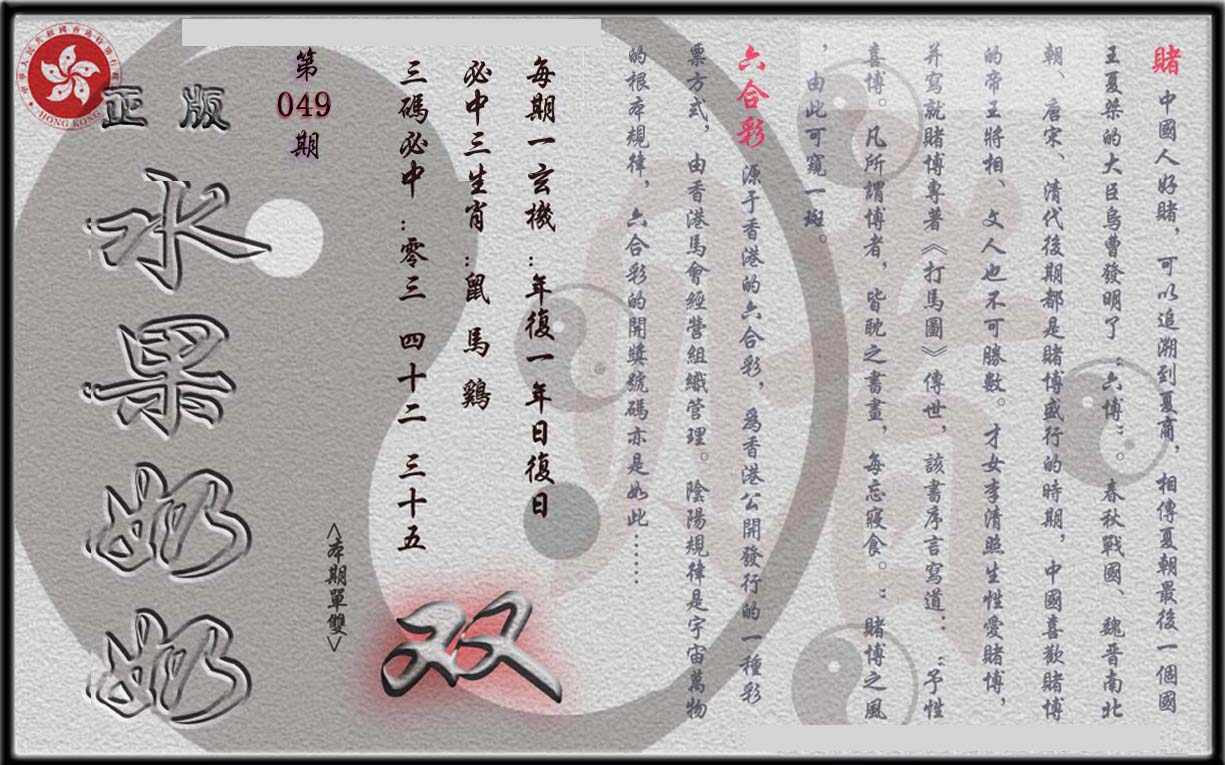 賭 中國人好賭，可以追溯到夏商，相傳夏朝最後一個國
王夏桀的大臣烏曹發明了：六博：。春秋戰國、魏晋南北
朝、唐宋、清代後期都是賭博盛行的時期，中國喜歡賭博
的帝王將相、文人也不可勝數。才女李清照生性愛賭博，
并寫就賭博專著《打馬圖》傳世，該書序言寫道：：予性
喜博。凡所謂博者，皆耽之晝晝，每忘寢食。：賭博之風
，由此可窺一斑。
六合彩 源于香港的六合彩，為香港公開發行的一種彩
票方式，由香港馬會經營組織管理。陰陽規律是宇宙萬物
的根本規律，六合彩的開獎號碼亦是如此……
每期一玄機：年復一年日復日
必中三生肖：鼠 馬 鷄
三碼必中：零三 四十二 三十五
双
<本期單雙>
第
049
期
正版
水果奶奶
HONG KONG